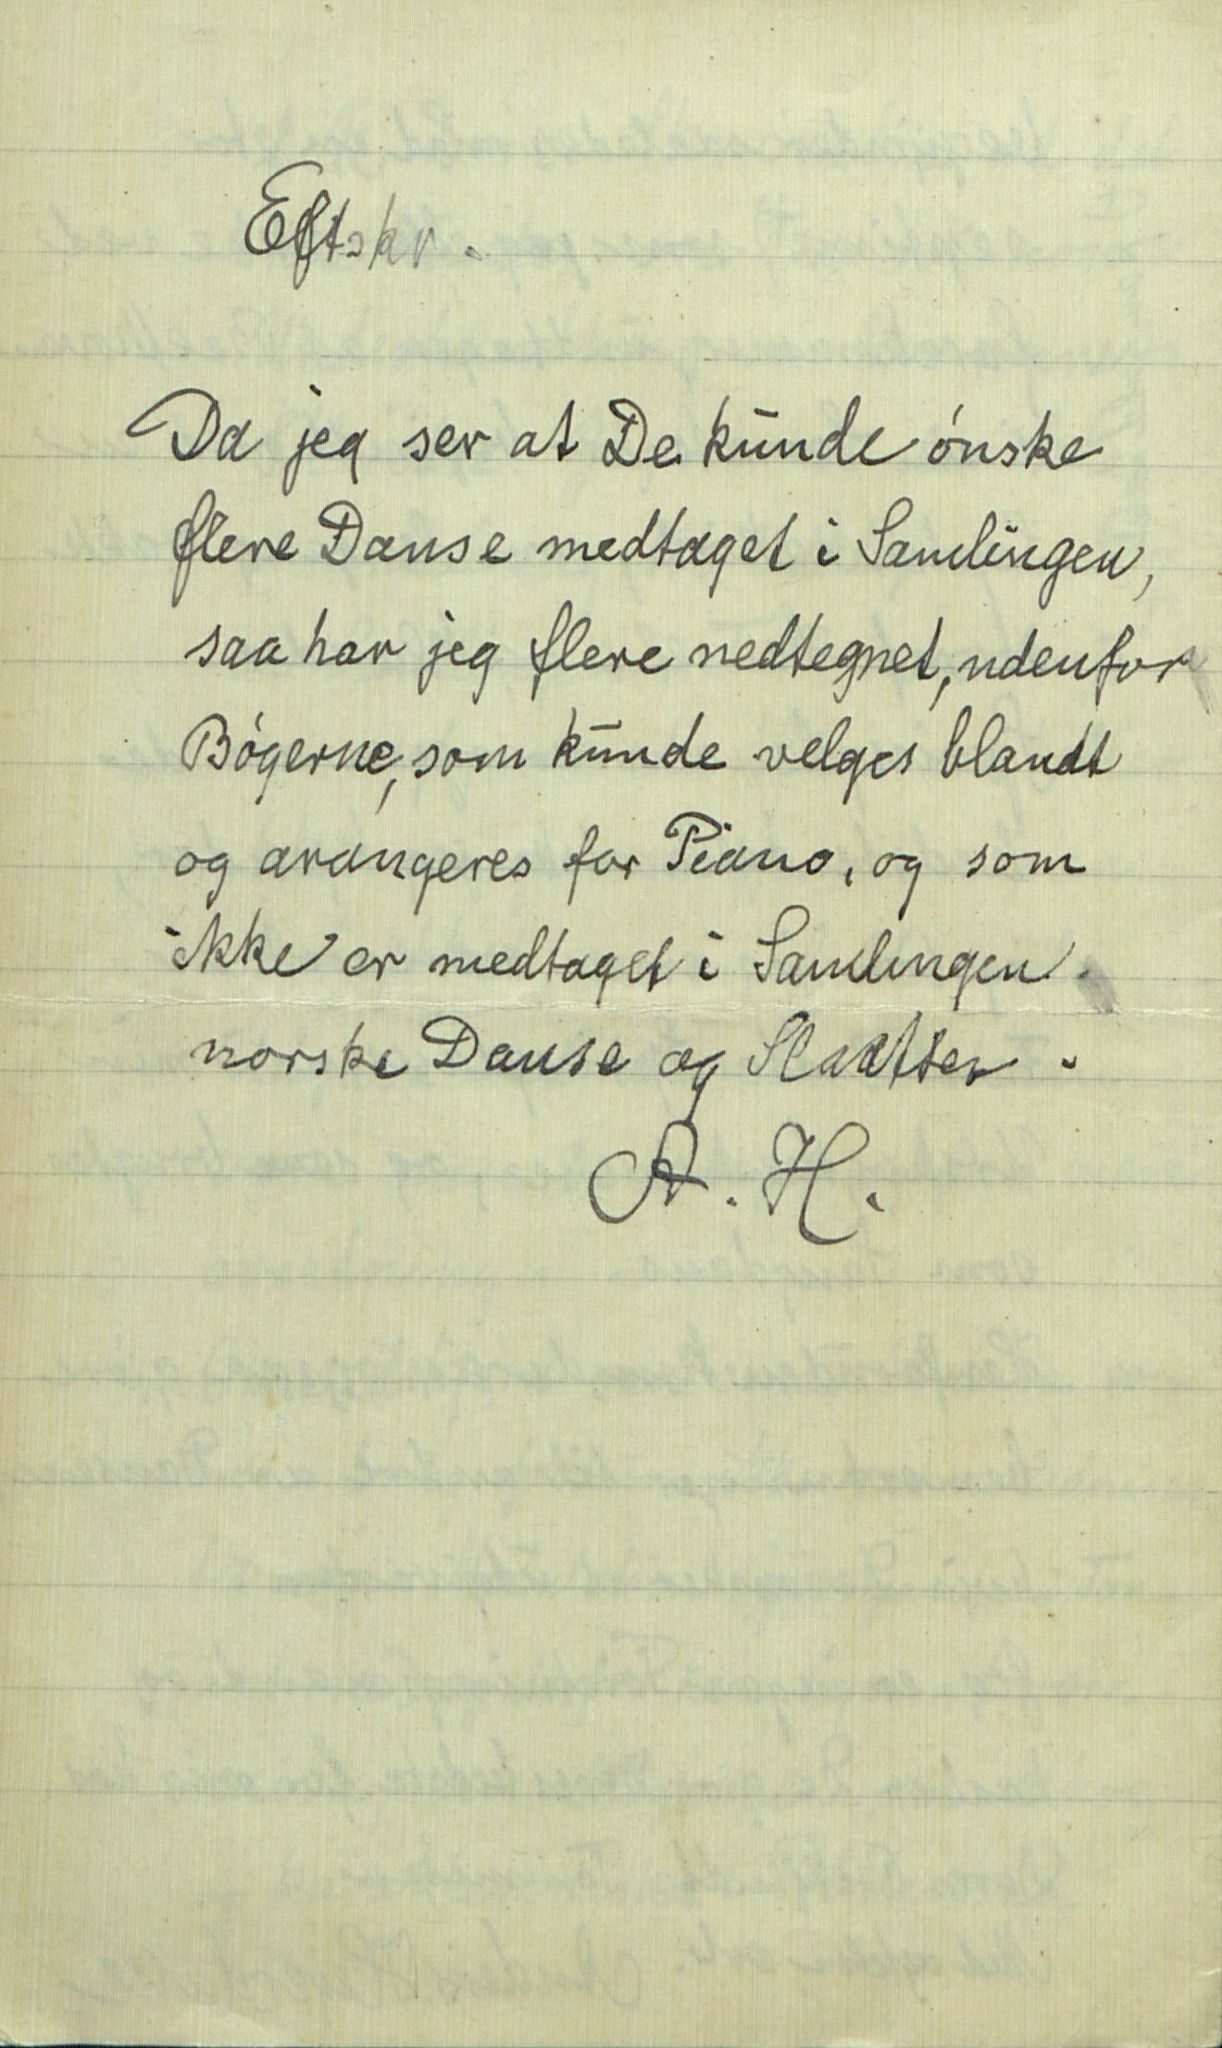 Eftskr.
Da jeg ser at De kunde ønske
flere Danse medtaget i Samlingen,
saa har jeg flere nedtegnet, udenfor
Bøgerne, som kunde velges blandt
og arangeres for Piano, og som
ikke er medtaget i Samlingen.
norske Danse og Slaatter.
A. H.